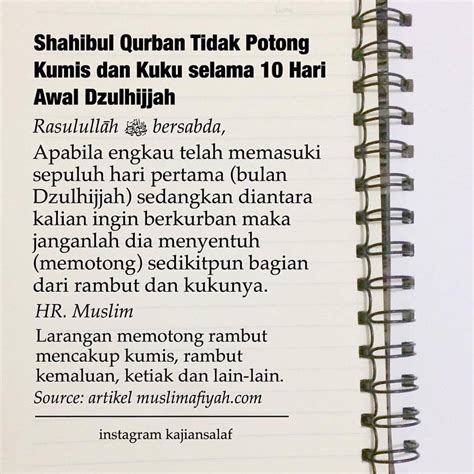 Shahibul Qurban Tidak Potong
Kumis dan Kuku selama 10 Hari
Awal Dzulhijjah
Rasulullāh ﷺ bersabda,
Apabila engkau telah memasuki
sepuluh hari pertama (bulan
Dzulhijjah) sedangkan diantara
kalian ingin berkurban maka
janganlah dia menyentuh
(memotong) sedikitpun bagian
dari rambut dan kukunya.
HR. Muslim
Larangan memotong rambut
mencakup kumis, rambut
kemaluan, ketiak dan lain-lain.
Source: artikel muslimafiyah.com
instagram kajiansalaf